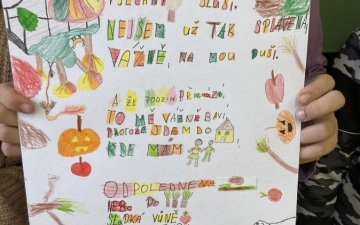 SLUŠÍ.
NEJSEM UŽ TAK SPLAVENÁ
VÁŽNĚ NA MOU DUŠI.
A ŽE PODZIM PŘICHÁZÍ,
TO MĚ VÁŽNĚ BAVÍ,
PROTOŽE JDEM DO
KDE MÁM
ODPOLEDNE NA
NEBO DO
SLADKÁ VŮNĚ